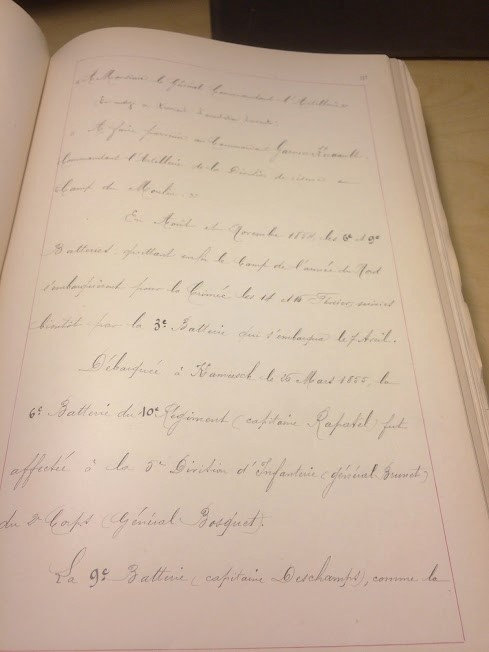 "A Monsieur le Général Commandant l'Artillerie
"A faire parvenir au Commandant
Commandant l'Artillerie de la Division de réserve au
Camp du Moulin."
En Août et Novembre 1854, les 6e et 9e
Batteries, quittant enfin le Camp de l'armée du Nord
s'embarquèrent pour la Crimée les 14 et 16 Février, suivies
bientôt par la 3e Batterie qui s'embarqua le 7 Avril.
Débarquée à Kamiesch le 25 Mars 1855, la
6e Batterie du 10e Régiment (capitaine Rapatel) fut
affectée à la 5e Division d'Infanterie (général Brunet)
du 2e Corps (Général Bosquet).
La 9e Batterie (capitaine Deschamps), comme la